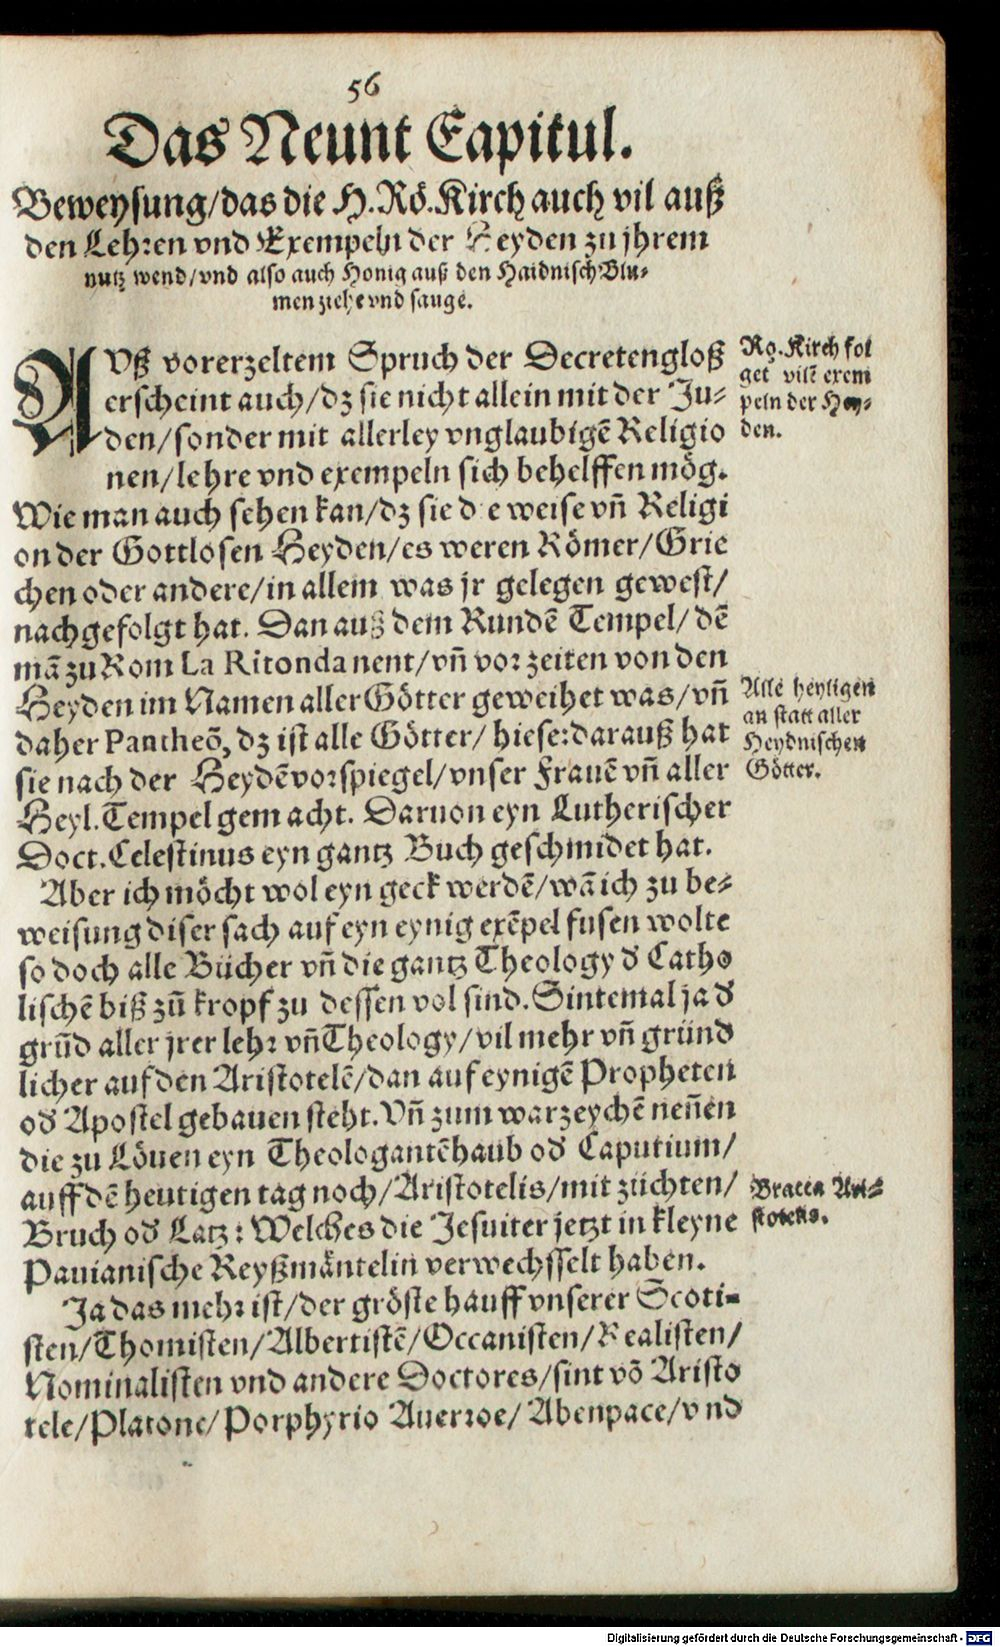 56
Das Neunt Capitul.
Beweysung/das die H. Rö. Kirch auch vil auß
den Lehren vnd Exempeln der Heyden zu jhrem
nutz wend/vnd also auch Honig auß den Haidnisch Blu-
men ziehe vnd sauge.
AVß vorerzeltem Spruch der Decretengloß
erscheint auch/dz sie nicht allein mit der Ju-
den/sonder mit allerley vnglaubigē Religio
nen/lehre vnd exempeln sich behelffen mög.
Wie man auch sehen kan/dz sie d e weise vñ Religi
on der Gottlosen Heyden/es weren Römer/Grie
chen oder andere/in allem was jr gelegen gewest/
nachgefolgt hat. Dan auß dem Rundē Tempel/dē
mā zu Rom La Ritonda nent/vñ vor zeiten von den
Heyden im Namen aller Götter geweihet was/vñ
daher Pantheō, dz ist alle Götter/hiese:darauß hat
sie nach der Heydē vorspiegel/vnser Frauē vñ aller
Heyl. Tempel gemacht. Daruon eyn Lutherischer
Doct. Celestinus eyn gantz Buch geschmidet hat.
Aber ich möcht wol eyn geck werdē/wā ich zu be-
weisung diser sach auf eyn eynig exēpel fusen wolte
so doch alle Bücher vñ die gantz Theology d̕ Catho
lischē biß zū kropf zu dessen vol sind. Sintemal ja d̕
grūd aller jrer lehr vñ Theology/vil mehr vñ gründ
licher auf den Aristotelē/dan auf eynigē Propheten
od̕ Apostel gebauen steht. Vñ zum warzeychē neñen
die zu Löuen eyn Theologantēhaub od̕ Caputium/
auff dē heutigen tag noch/Aristotelis/mit züchten/
Bruch od̕ Latz: Welches die Jesuiter jetzt in kleyne
Pauianische Reyßmäntelin verwechsselt haben.
Ja das mehr ist/der gröste hauff vnserer Scoti-
sten/Thomisten/Albertistē/Occanisten/Realisten/
Nominalisten vnd andere Doctores/sint vō Aristo
tele/Platone/Porphyrio Auerroe/Abenpace/vnd
Rö. Kirch fol
get vilē exem
peln der Hey-
den.
Alle heyligen
an statt aller
Heydnischen
Götter.
Bracca Ari-
stotelis.
Digitalisierung gefördert durch die Deutsche Forschungsgemeinschaft - DFG